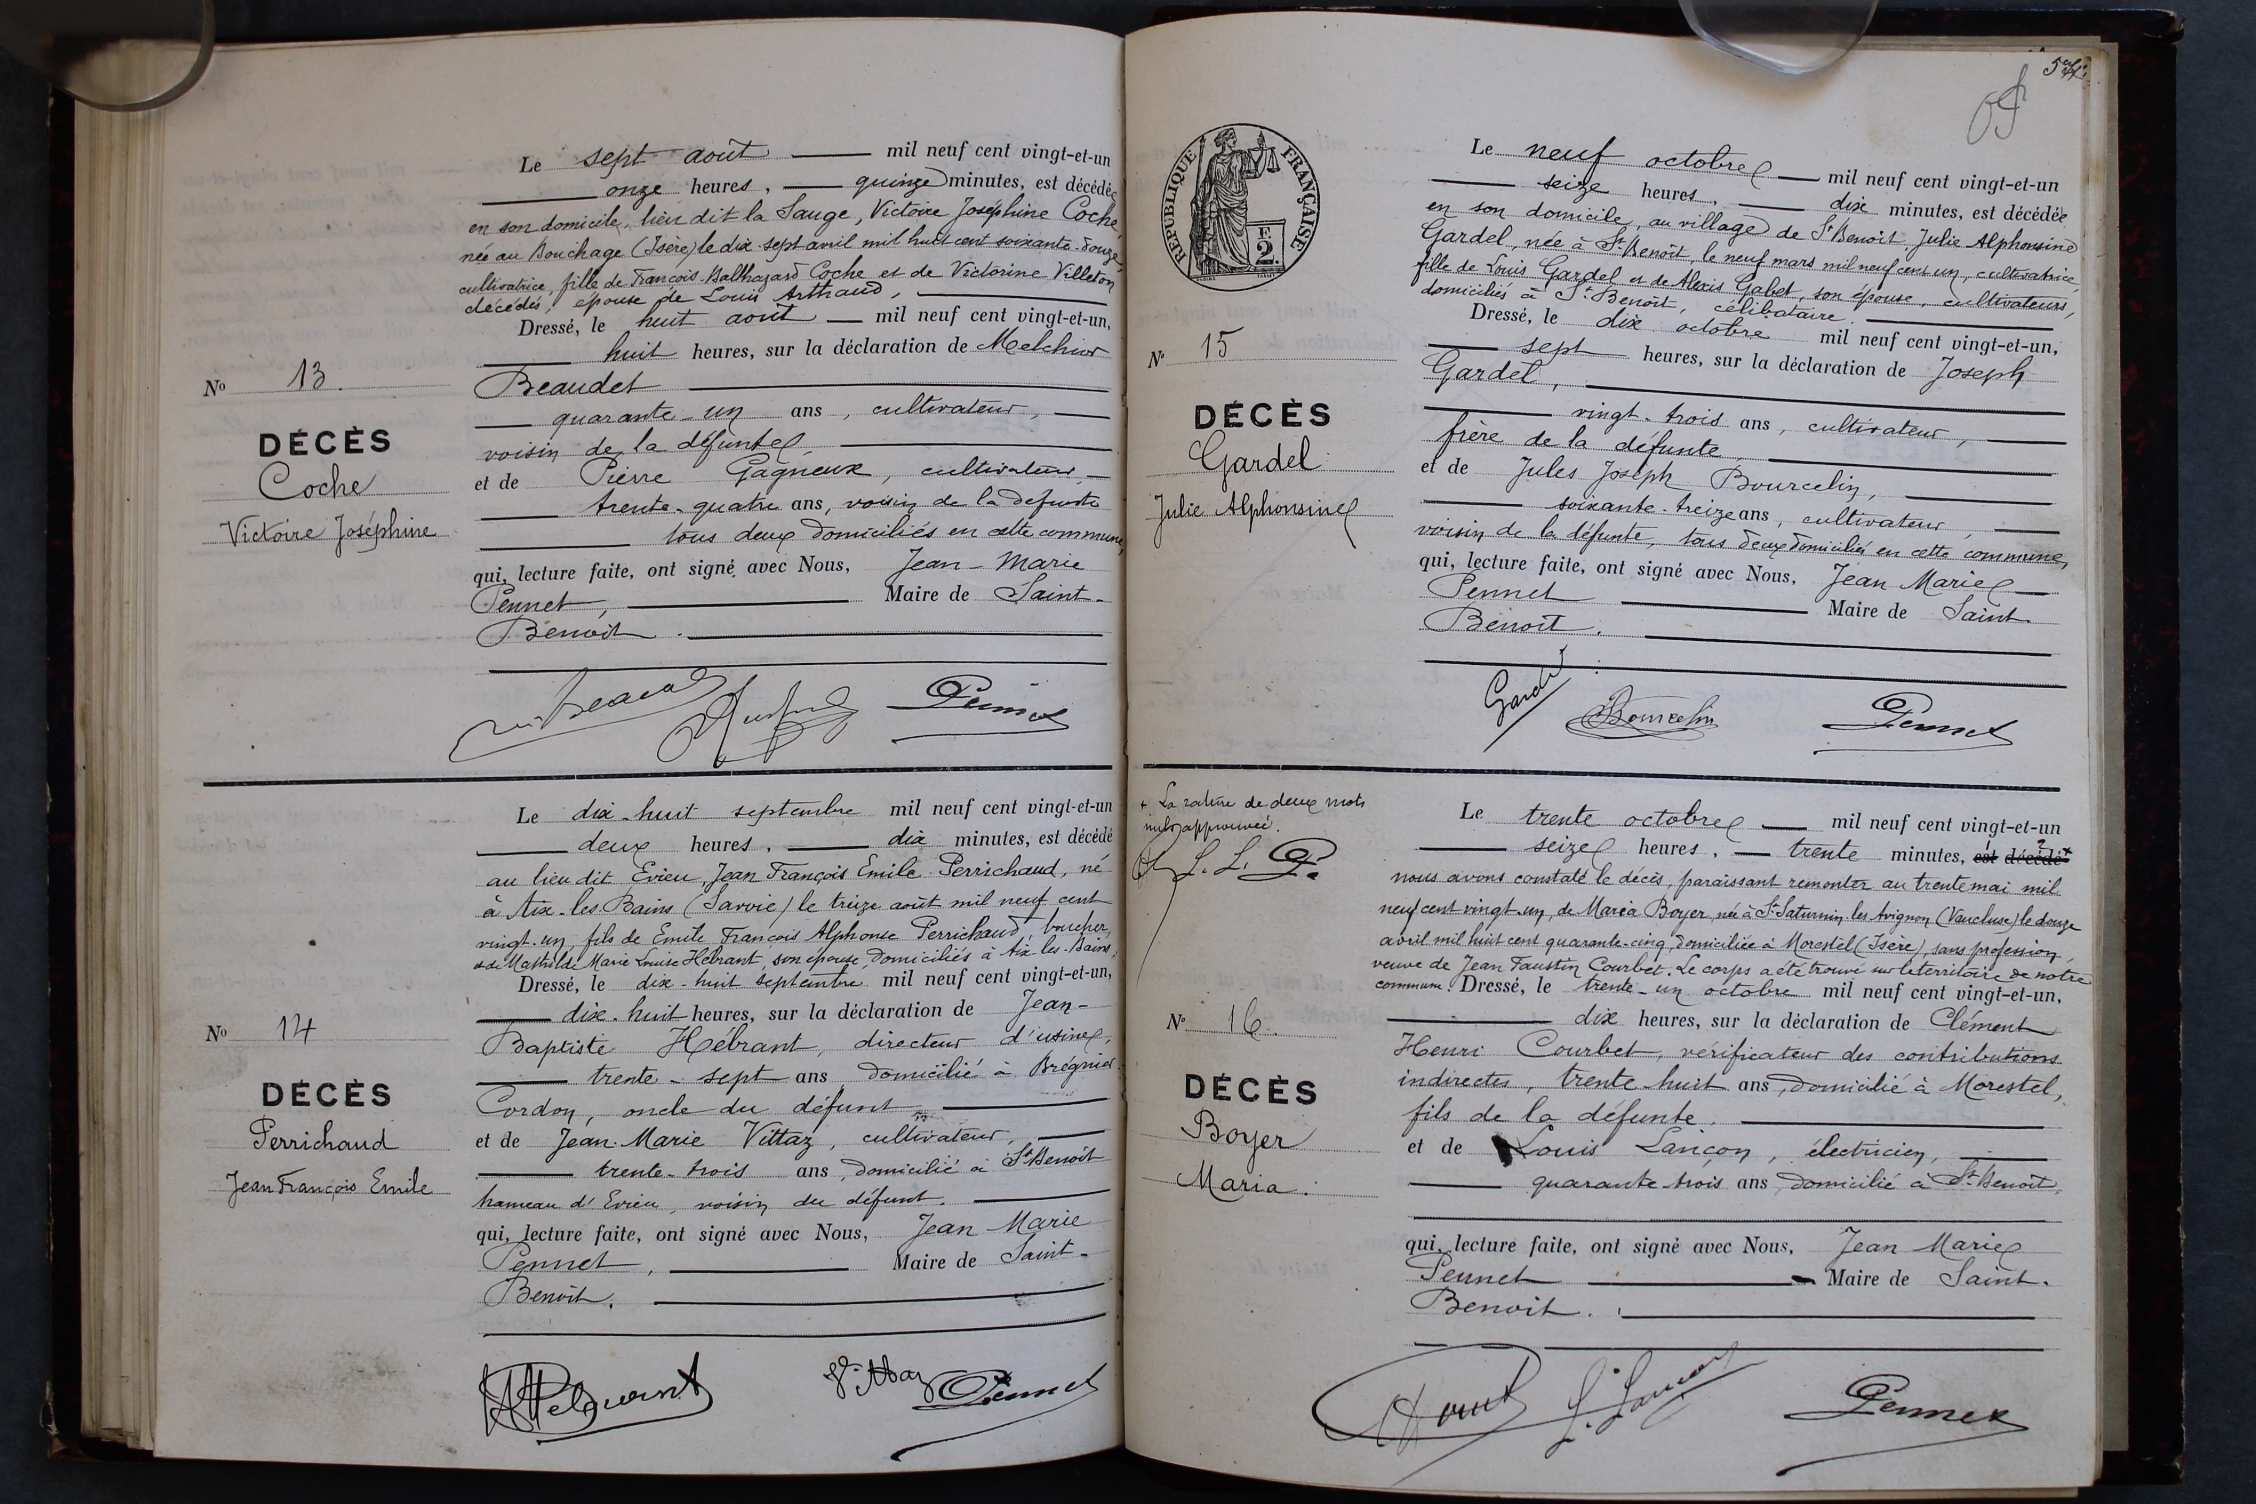 Le sept août mil neuf cent vingt-et-un
onze heures, quinze minutes, est décédée
en son domicile, lieu dit la Sauge, Victoire Joséphine Coche,
née au Bouchage (Isère) le dix-sept avril mil huit cent soixante-douze,
cultivatrice, fille de François-Balthazard Coche et de Victorine Villeton,
décédés, épouse de Louis Arthaud,
Dressé, le huit août mil neuf cent vingt-et-un,
huit heures, sur la déclaration de Melchior
Beaudet
quarante-un ans, cultivateur,
voisin de la défunte
et de Pierre Gagneux, cultivateur,
trente-quatre ans, voisin de la défunte
tous deux domiciliés en cette commune,
qui, lecture faite, ont signé avec Nous, Jean-Marie
Pennet, Maire de Saint-
Benoit.
Pennet
No 13.
DÉCÈS
Coche
Victoire Joséphine
Le dix-huit septembre mil neuf cent vingt-et-un
deux heures, dix minutes, est décédé
au lieu dit Evieu, Jean François Emile Perrichaud, né
à Aix-les-Bains (Savoie) le treize août mil neuf cent
vingt-un, fils de Emile François Alphonse Perrichaud, boucher,
et de Mathilde Marie Louise Hébrant, son épouse, domiciliés à Aix-les-Bains,
Dressé, le dix-huit septembre mil neuf cent vingt-et-un,
dix-huit heures, sur la déclaration de Jean-
Baptiste Hébrant, directeur d'usine,
trente-sept ans domicilié à Brégnier
Cordon, oncle du défunt
et de Jean-Marie Vittaz, cultivateur,
trente-trois ans, domicilié à St Benoît
hameau d'Evieu, voisin du défunt.
qui, lecture faite, ont signé avec Nous, Jean-Marie
Pennet, Maire de Saint-
Benoit.
Pennet
No 14
DÉCÈS
Perrichaud
Jean François Emile
RÉPUBLIQUE FRANÇAISE
F.
2.
Le neuf octobre mil neuf cent vingt-et-un
seize heures, dix minutes, est décédée
en son domicile, au village de St Benoît, Julie Alphonsine
Gardel, née à St Benoît, le neuf mars mil neuf cent un, cultivatrice,
fille de Louis Gardel et de Alexis Gabet, son épouse, cultivateurs,
domiciliés à St Benoît, célibataire.
Dressé, le dix octobre mil neuf cent vingt-et-un,
sept heures, sur la déclaration de Joseph
Gardel,
vingt-trois ans, cultivateur,
frère de la défunte,
et de Jules Joseph Bourcelin,
soixante-treize ans, cultivateur,
voisin de la défunte, tous deux domiciliés en cette commune,
qui, lecture faite, ont signé avec Nous, Jean Marie
Pennet Maire de Saint-
Benoit.
Gardel
Bourcelin
Pennet
No 15
DÉCÈS
Gardel
Julie Alphonsine
+ La rature de deux mots
nuls approuvée.
L. L. P.
Le trente octobre mil neuf cent vingt-et-un
seize heures, trente minutes, est décédé +
nous avons constaté le décès, paraissant remonter au trente mai mil
neuf cent vingt-un, de Maria Boyer, née à St Saturnin-les-Avignon (Vaucluse) le douze
avril mil huit cent quarante-cinq, domiciliée à Morestel (Isère), sans profession,
veuve de Jean Faustin Courbet. Le corps a été trouvé sur le territoire de notre
commune. Dressé, le trente-un octobre mil neuf cent vingt-et-un,
dix heures, sur la déclaration de Clément
Henri Courbet, vérificateur des contributions
indirectes, trente-huit ans, domicilié à Morestel,
fils de la défunte.
et de Louis Lançon, électricien,
quarante-trois ans, domicilié à St Benoît,
qui, lecture faite, ont signé avec Nous, Jean Marie
Pennet Maire de Saint-
Benoit.
L. Lançon
Pennet
No 16.
DÉCÈS
Boyer
Maria.